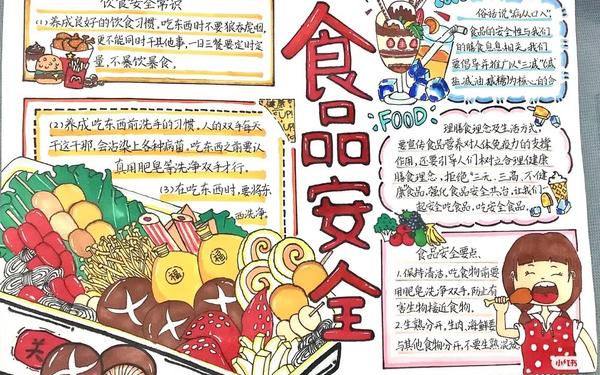 饮食安全常识
(1)养成良好的饮食习惯,吃东西时不要狼吞虎咽,
更不能同时干其他事,一日三餐要定时定
量,不暴饮暴食。
(2)养成吃东西前洗手的习惯,人的双手每天
干这干那,会沾染上各种病菌。吃东西之前要认
真用肥皂等洗净双手才行。
(3)在吃东西时,要将东
西洗净。
福
福
关
食品安全
俗话说“病从口入”,
食品的安全性与我们
的膳食息息相关。我们
要倡导并推广以“三减”(减
盐、减油、减糖)为核心的合
FOOD
理膳食理念及生活方式,
要宣传食品营养对人体免疫力的支撑
作用,还要引导人们树立合理健康
膳食理念,拒绝“三无、三高、不健
康食品,强化食品安全共治,让我们一
起安吃食品,吃安全食品。
食品安全要点、
1.保持清洁、吃食物前要
用肥皂洗净双手,防止有
害生物接近食物。
2.生熟分开,生肉、海鲜要
与其他食物分开,不要生熟混放
小红书